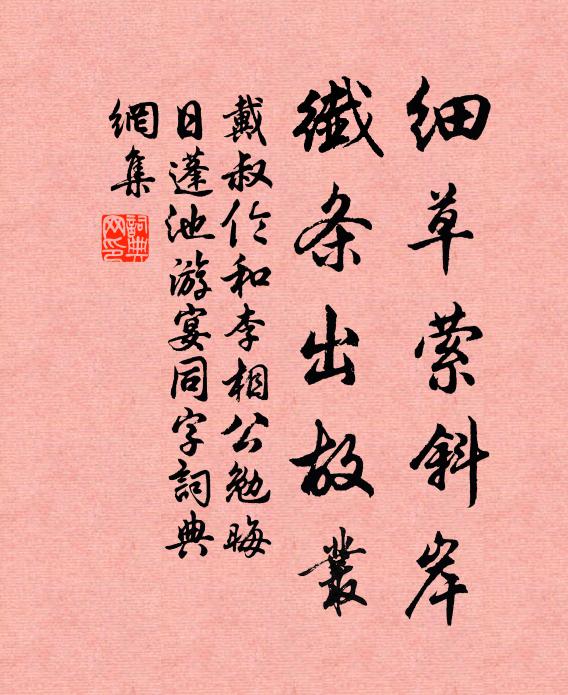 细草萦斜岸
纖条出故叢
戴叔伦和李相公勉晦
日蓬池游宴同字詞典
網集
詞典網印